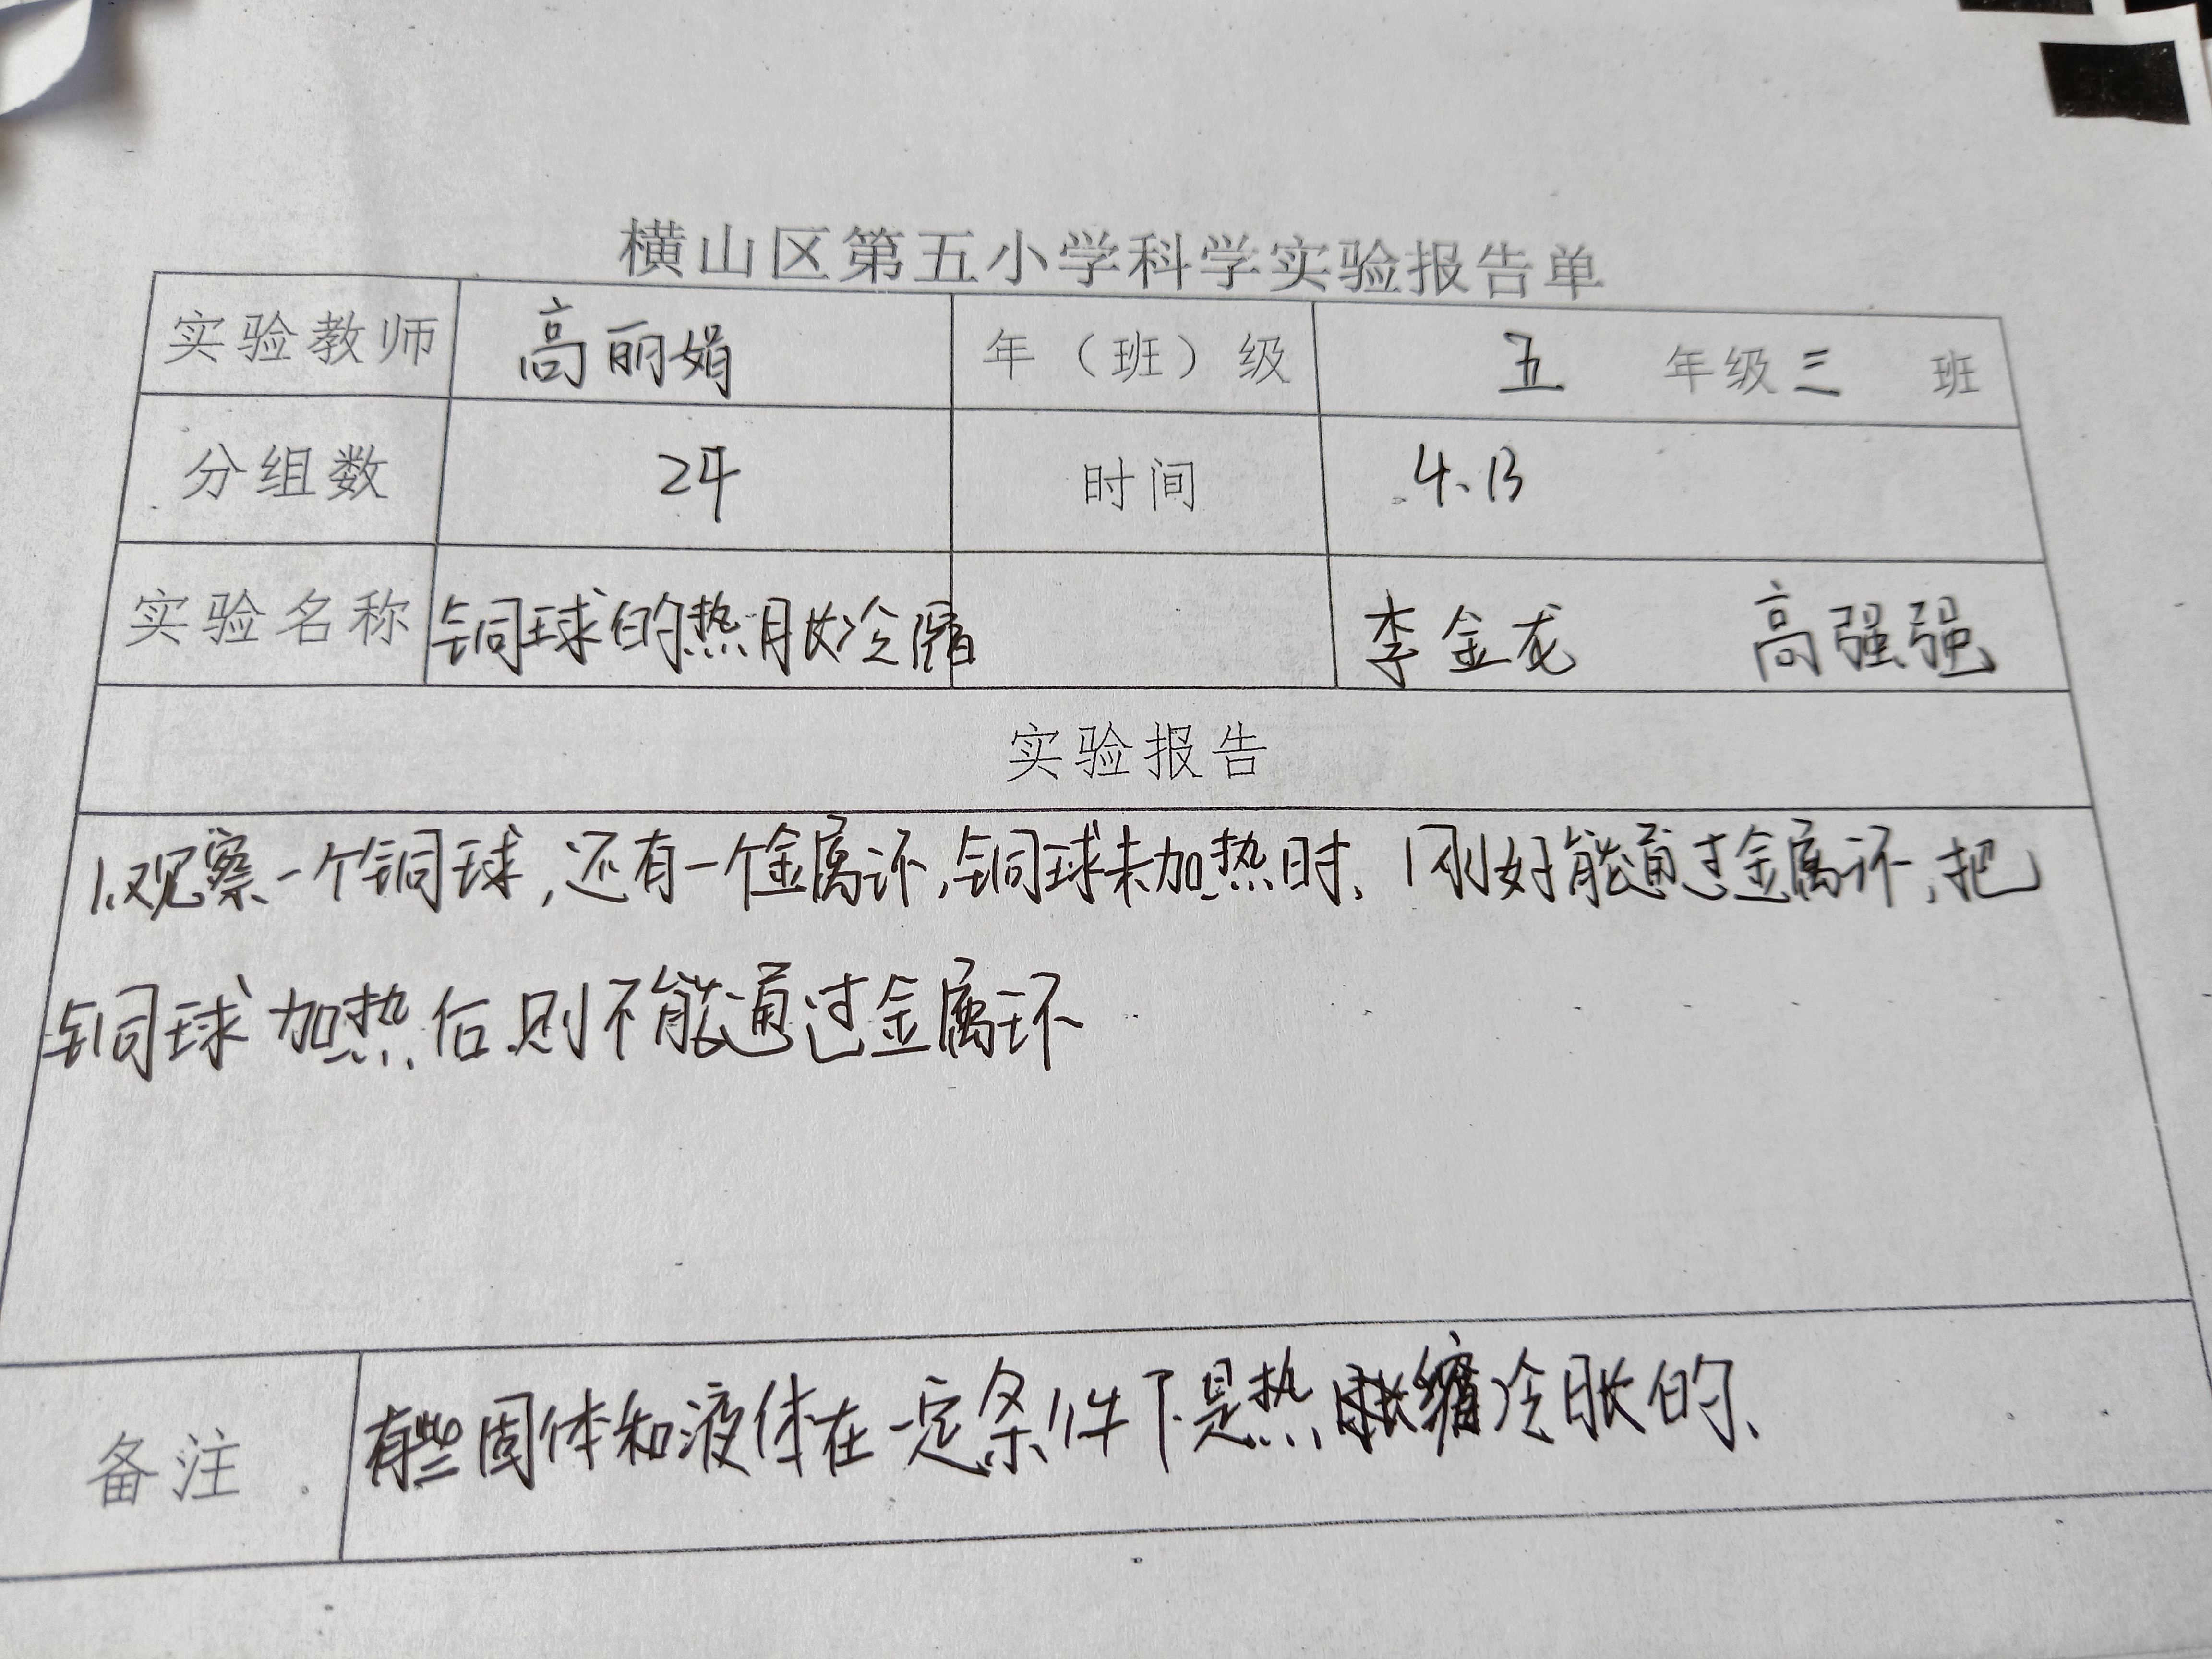 横山区第五小学科学实验报告单
实验教师 高丽娟 年（班）级 五 年级三 班
分组数 24 时间 4.13
实验名称 铜球的热胀冷缩 李金龙 高强强
实验报告
1.观察一个铜球,还有一个金属环,铜球未加热时、刚好能通过金属环,把
铜球加热后则不能通过金属环
备注 有些固体和液体在一定条件下是热缩冷胀的、